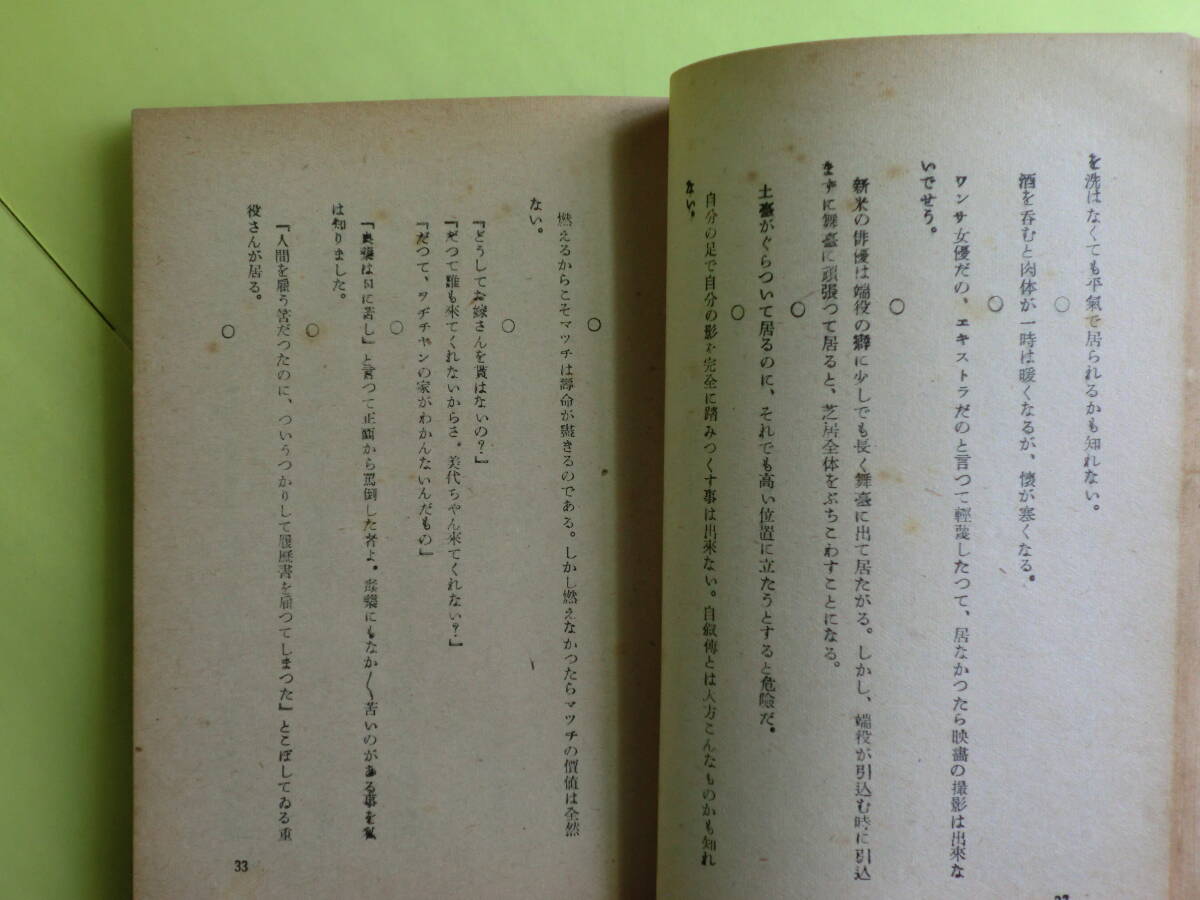 を洗はなくても平氣で居られるかも知れない。
○
酒を呑むと肉体が一時は暖くなるが、懐が寒くなる。
○
ワンサ女優だの、エキストラだのと言つて輕蔑したつて、居なかつたら映畫の撮影は出來な
いでせう。
○
新米の俳優は端役の癖に少しでも長く舞臺に出て居たがる。しかし、端役が引込む時に引込
まずに舞臺に頑張つて居ると、芝居全体をぶちこわすことになる。
○
土臺がぐらついて居るのに、それでも高い位置に立たうとすると危險だ。
○
自分の足で自分の影を完全に踏みつくす事は出來ない。自叙傳とは大方こんなものかも知れ
ない。
○
燃えるからこそマツチは壽命が盡きるのである。しかし燃えなかつたらマツチの價値は全然
ない。
○
『どうしてお嫁さんを貰はないの？』
『だつて誰も来てくれないからさ。美代ちやん来てくれない？』
『だつて、ヲヂチヤンの家がわかんないんだもの』
○
『良藥は口に苦し』と言つて正面から罵倒した者よ。毒藥にもなか〱苦いのがある事を私
は知りました。
○
『人間を雇う筈だつたのに、ついうつかりして履歴書を雇つてしまつた』とこぼしてゐる重
役さんが居る。
○
33